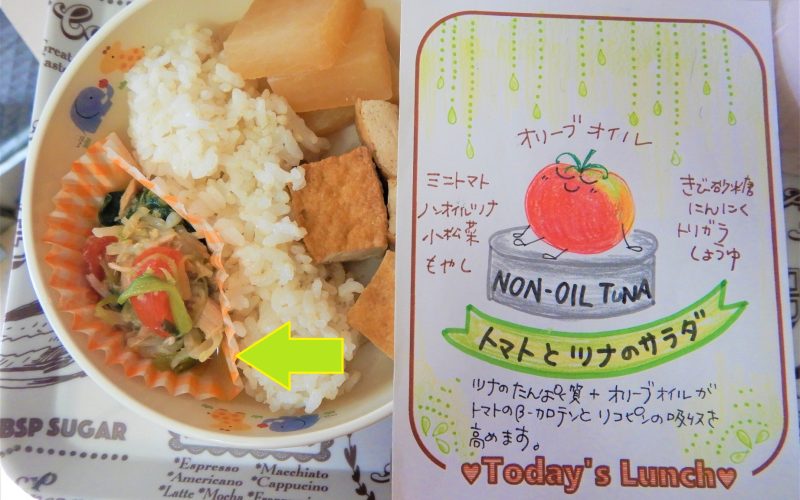 オリーブオイル
ミニトマト
ノンオイルツナ
小松菜
もやし
きび砂糖
にんにく
トリガラ
しょうゆ
NON-OIL TUNA
トマトとツナのサラダ
ツナのたんぱく質+オリーブオイルが
トマトのβ-カロテンとリコピンの吸収を
高めます。
♥Today's Lunch♥
BSP SUGAR
*Espresso *Macchiato
*Americano *Cappucino
*Latte *Mocha